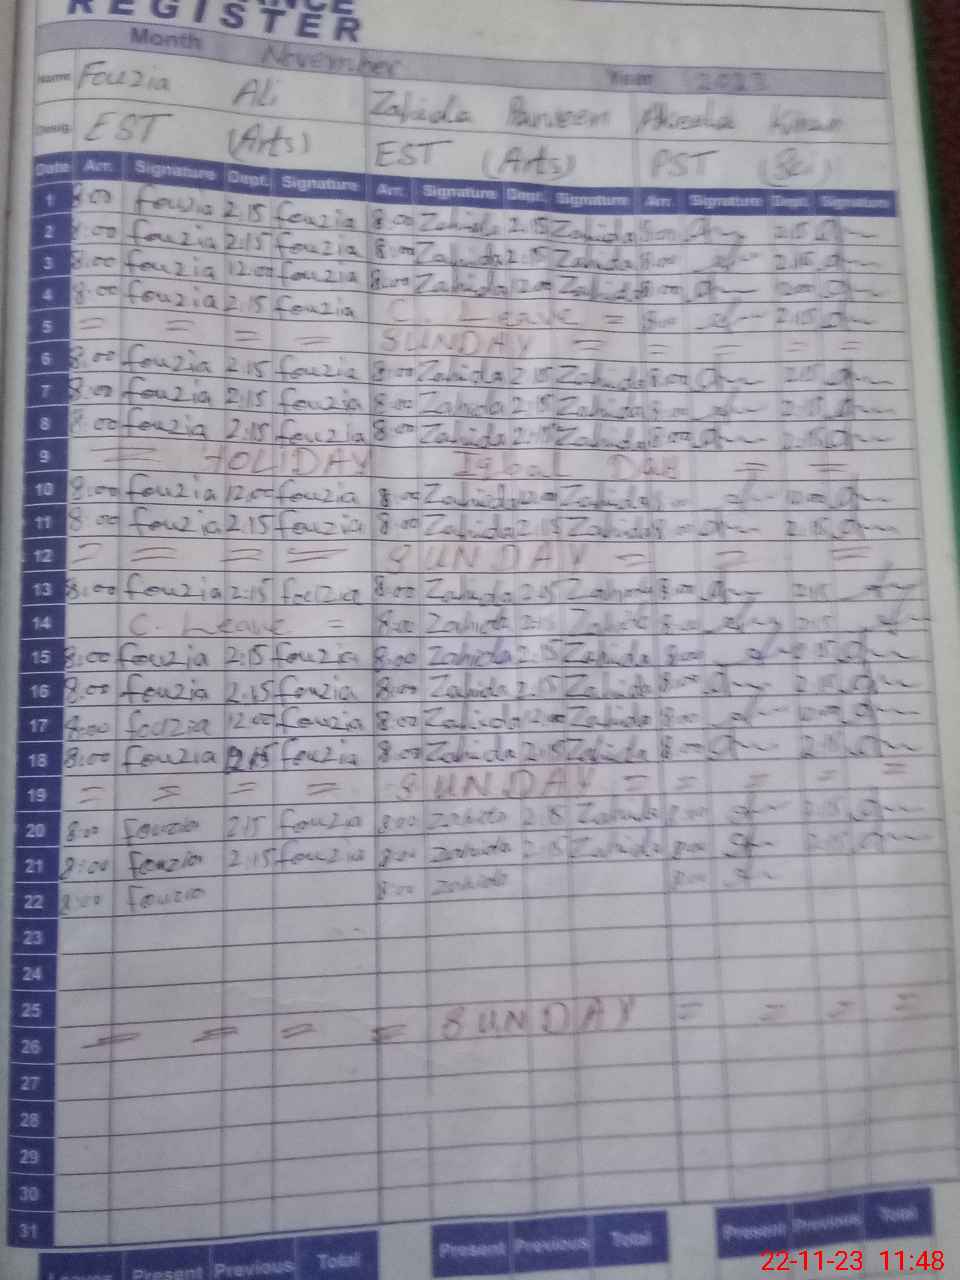 ANCE
REGISTER
Month November Year 2023
Name Fouzia Ali Zahida Parveen Kiran
Desig. EST (Arts) EST (Arts) PST (Sc)
Date Arr. Signature Dept. Signature Arr. Signature Dept. Signature Arr. Signature Dept. Signature
1 8:00 fouzia 2:15 fouzia 8:00 Zahida 2:15 Zahida 8:00 2:15
2 8:00 fouzia 2:15 fouzia 8:00 Zahida 2:15 Zahida 8:00 2:15
3 8:00 fouzia 12:00 fouzia 8:00 Zahida 12:00 Zahida 8:00 12:00
4 8:00 fouzia 2:15 fouzia C. Leave = 8:00 2:15
5 = = = = SUNDAY = = = = =
6 8:00 fouzia 2:15 fouzia 8:00 Zahida 2:15 Zahida 8:00 2:15
7 8:00 fouzia 2:15 fouzia 8:00 Zahida 2:15 Zahida 8:00 2:15
8 8:00 fouzia 2:15 fouzia 8:00 Zahida 2:15 Zahida 8:00 2:15
9 = HOLIDAY Iqbal Day = =
10 8:00 fouzia 12:00 fouzia 8:00 Zahida 12:00 Zahida 8:00 12:00
11 8:00 fouzia 2:15 fouzia 8:00 Zahida 2:15 Zahida 8:00 2:15
12 = = = = SUNDAY = = =
13 8:00 fouzia 2:15 fouzia 8:00 Zahida 2:15 Zahida 8:00 2:15
14 C. Leave = 8:00 Zahida 2:15 Zahida 8:00 2:15
15 8:00 fouzia 2:15 fouzia 8:00 Zahida 2:15 Zahida 8:00 2:15
16 8:00 fouzia 2:15 fouzia 8:00 Zahida 2:15 Zahida 8:00 2:15
17 8:00 fouzia 12:00 fouzia 8:00 Zahida 12:00 Zahida 8:00 12:00
18 8:00 fouzia 2:15 fouzia 8:00 Zahida 2:15 Zahida 8:00 2:15
19 = = = = SUNDAY = = = = =
20 8:00 Fouzia 2:15 fouzia 8:00 Zahida 2:15 Zahida 8:00 2:15
21 8:00 fouzia 2:15 fouzia 8:00 Zahida 2:15 Zahida 8:00 2:15
22 8:00 fouzia 8:00 Zahida 8:00
23
24
25
26 = = = = SUNDAY = = = =
27
28
29
30
31
Leaves Present Previous Total Present Previous Total Present Previous Total
22-11-23 11:48